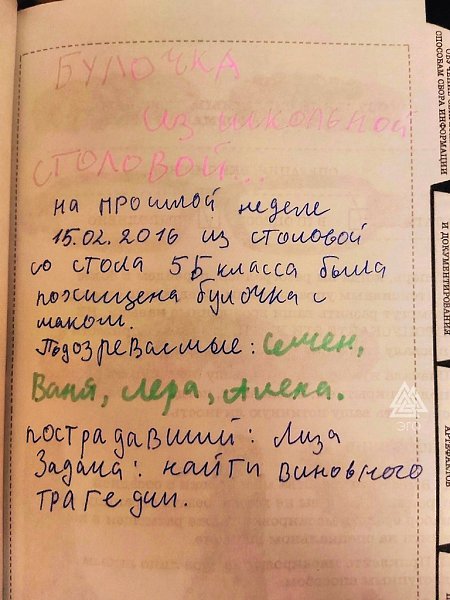 БУЛОЧКА
ИЗ ШКОЛЬНОЙ
СТОЛОВОЙ...
на прошлой неделе
15.02.2016 из столовой
со стола 5Б класса была
похищена булочка с
маком.
Подозреваемые: Семен,
Ваня, Лера, Алена.
пострадавший: Лиза
Задача: найти виновного
трагедии.
СПОСОБАМ СБОРА ИНФОРМАЦИИ
И ДОКУМЕНТИРОВАНИЯ
АРТЕФАКТОВ
ЭГО